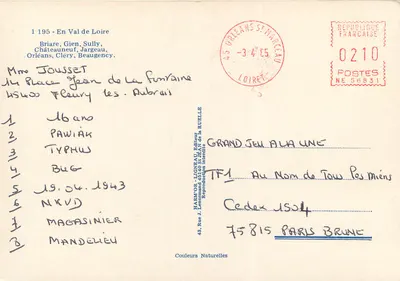 I 195 - En Val de Loire
Briare, Gien, Sully,
Châteauneuf, Jargeau,
Orléans, Cléry, Beaugency.
Mme JOUSSET
14 Place Jean de la Fontaine
45400 Fleury les Aubrais
1 16 ans
2 PAWIAK
3 TYPHUS
4 BUG
5 19.04.1943
6 NKVD
7 MAGASINIER
8 MANDELIEU
45 ORLEANS ST MARCEAU
LOIRET
REPUBLIQUE
FRANCAISE
0210
POSTES
GRAND JEU A LA UNE
TF1 AU NOM DE TOUS LES MIENS
Cedex 1504
75815 PARIS BRUNE
Couleurs Naturelles